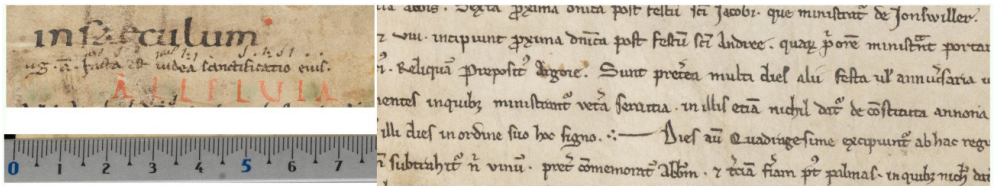 in sæculum
ug. a. facta est iudea sanctificatio eius.
ALLELUIA
0 1 2 3 4 5 6 7
abbis. Sexta proxima dnica post festū sci Jacobi. que ministrat' de Jonswiller.
z viii. incipiunt proxima dnica post festū sci Andree. quaȝ p̄ore ministrat portar
Reliquā Preposit' Bigorie. Sunt pretea multi dies alii festa ul' annuersaria
entes inquibȝ ministrant' uetā seruitia. in illis etiā nichil dat' de cōstituta annona
illi dies in ordine suo hoc signo. ∴— Dies aū Quadragesime excipiunt' ab hac regu
subtrahit' n̄ uinū. pret' cōmemorat' Abbm. z t'ciā fiam p't palmas. inquibȝ nich' dat